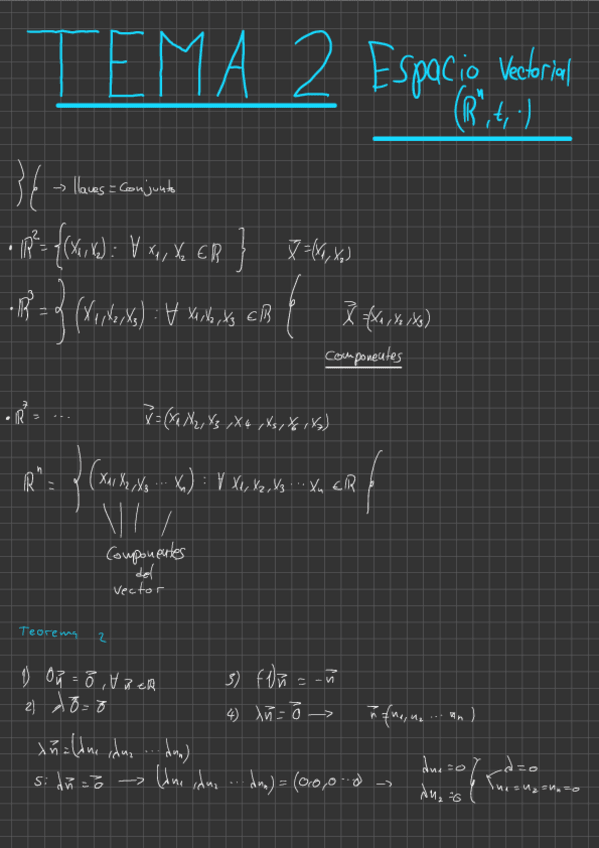 TEMA 2 Espacio Vectorial
(ℝⁿ, +, ·)
}{ → llaves = Conjunto
• ℝ² = {(x₁, x₂) : ∀ x₁, x₂ ∈ ℝ } x⃗ = (x₁, x₂)
• ℝ³ = } (x₁, x₂, x₃) : ∀ x₁, x₂, x₃ ∈ ℝ { x⃗ = (x₁, x₂, x₃)
Componentes
• ℝ⁷ = ... x⃗ = (x₁, x₂, x₃, x₄, x₅, x₆, x₇)
ℝⁿ = } (x₁, x₂, x₃ ... xₙ) : ∀ x₁, x₂, x₃ ... xₙ ∈ ℝ {
Componentes
del
vector
Teorema 2
1) 0u⃗ = 0⃗, ∀ u⃗ ∈ ℝ 3) (-1)u⃗ = -u⃗
2) λ0⃗ = 0⃗ 4) λu⃗ = 0⃗ → u⃗ = (u₁, u₂ ... uₙ)
λu⃗ = (λu₁, λu₂ ... λuₙ)
S: λu⃗ = 0⃗ → (λu₁, λu₂ ... λuₙ) = (0,0,0...0) → λu₁ = 0 λ = 0
λu₂ = 0 u₁ = u₂ = uₙ = 0